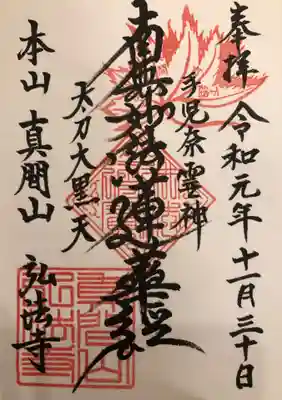 奉拝 令和元年十一月三十日
手児奈霊神
南無妙法蓮華経
太刀大黒天
本山 真間山 弘法寺